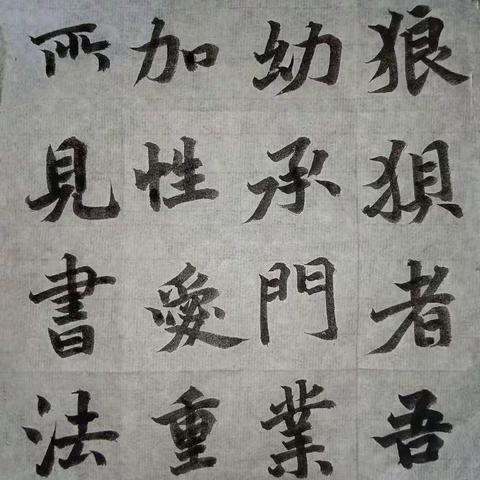 狼狽者吾
幼承門業
加性愛重
所見書法